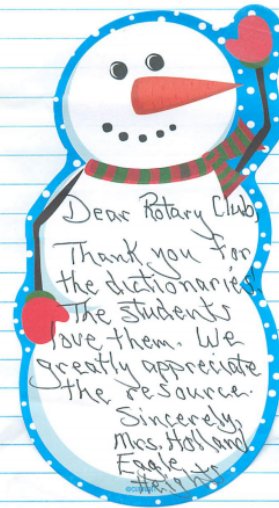 Dear Rotary Club,
Thank you for
the dictionaries!
The students
love them. We
greatly appreciate
the resource.
Sincerely,
Mrs. Holland
Eagle
Heights